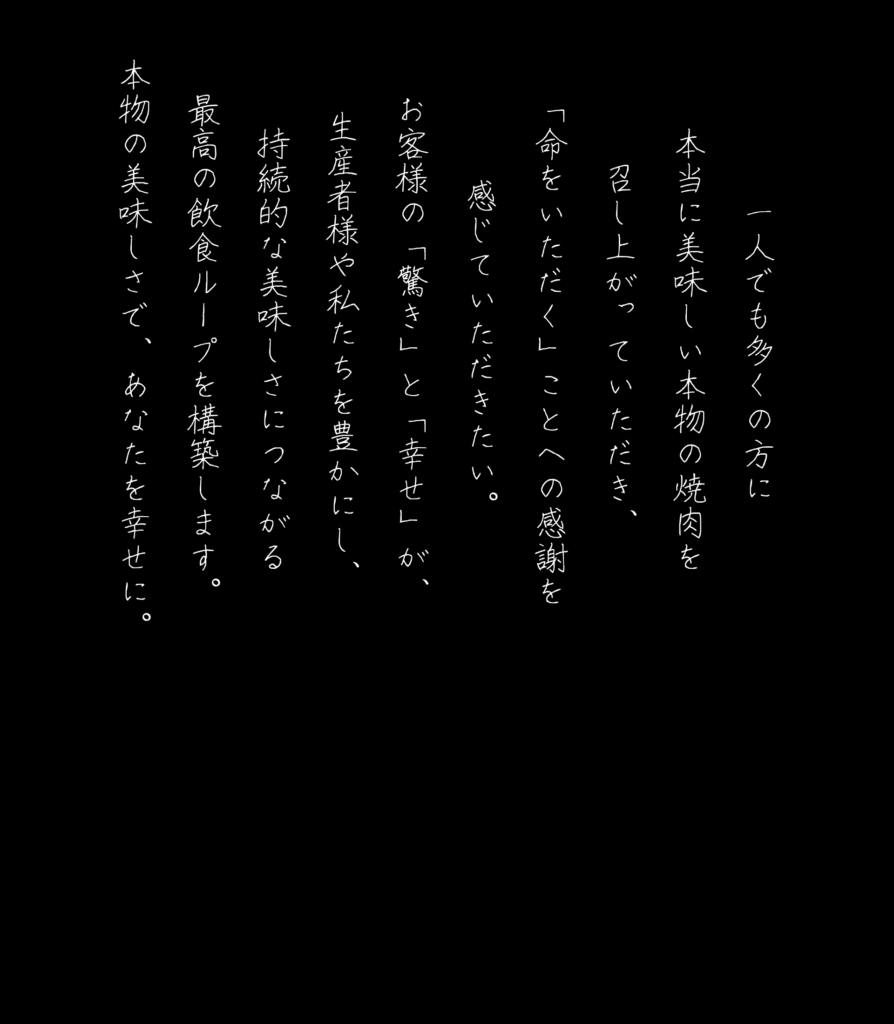 一人でも多くの方に
本当に美味しい本物の焼肉を
召し上がっていただき、
「命をいただく」ことへの感謝を
感じていただきたい。
お客様の「驚き」と「幸せ」が、
生産者様や私たちを豊かにし、
持続的な美味しさにつながる
最高の飲食ループを構築します。
本物の美味しさで、あなたを幸せに。